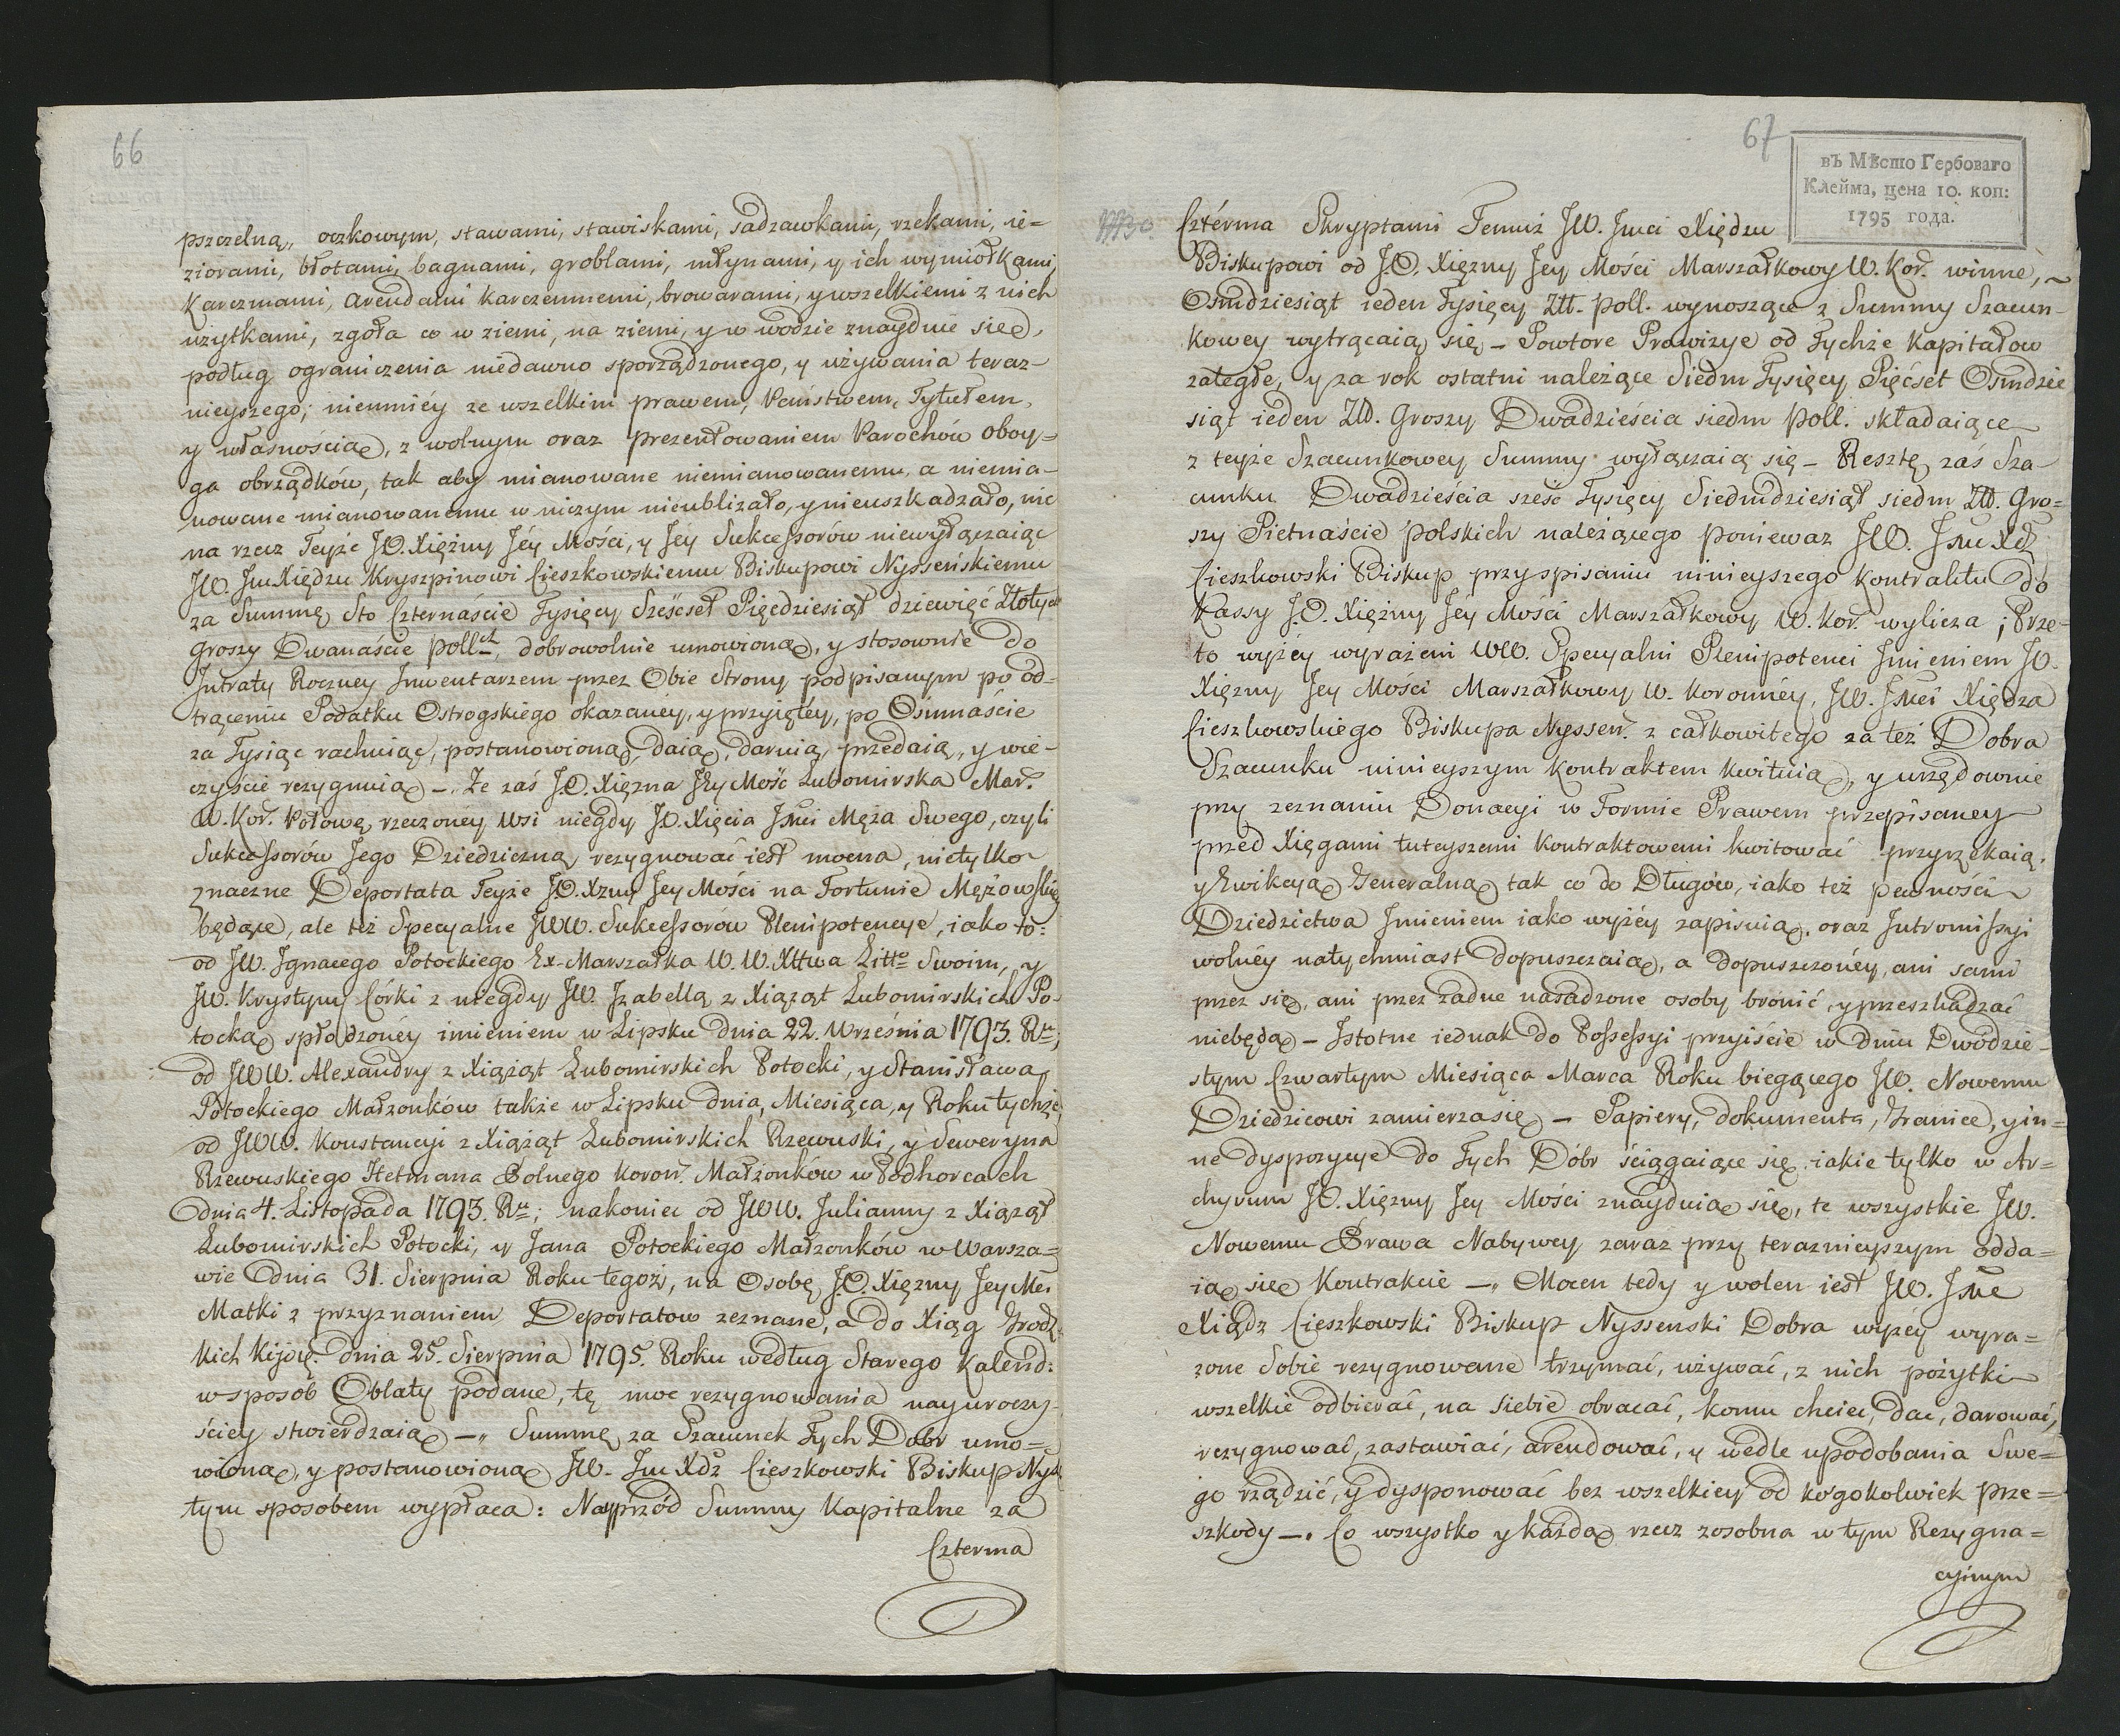 66
pszczelną, oczkowym, stawami, stawiskami, sadzawkami, rzekami, ie=
ziorami, błotami, bagnami, groblami, młynami, y ich wymiołkami,
Karczmami, Arendami karczemnemi, browarami, y wszelkiemi z nich
użytkami, zgoła co w ziemi, na ziemi, y w wodzie znayduie się,
podług ograniczenia niedawno sporządzonego, y używania teraz-
nieyszego; niemniey ze wszelkim prawem, Państwem, Tytułem,
y własnością, z wolnym oraz prezentowaniem Parochów oboy-
ga obrządków, tak aby mianowane niemianowanemu, a niemia-
nowane mianowanemu w niczym nieubliżało, y nieuszkadzało, nic
na rzecz Teyże JO. Xiężny Jéy Mości, y Jéy Sukcessorów niewyłączaiąc
JW. Jm Xiędzu Kryszpinowi Cieszkowskiemu Biskupowi Nysseńskiemu
za Summę Sto Czternaście Tysięcy Sześcset Pięcdziesiąt dziewięć Złotych
groszy Dwanaście poll<sup>ch</sup>, dobrowolnie umowioną, y stosownie do
Jntraty Roczney Jnwentarzem przez Obie Strony podpisanym po od-
trąceniu Podatku Ostrogskiego okazanéy, y przyiętéy, po Osmnaście
za Tysiąc rachuiąc, postanowioną, daią, daruią, przedaią, y wie-
czyście rezygnuią -. Że zaś J.O. Xiężna Jéy Mość Lubomirska Mar.
W. Kor. Połowę rzeczonéy Wsi niegdy JO. Xięcia Jmci Męża Swego, czyli
Sukcessorów Jego Dziedziczną rezygnować iest mocna, nietylko
znaczne Deportata Teyże JO. Xzny Jey Mości na Fortunie Mężowskiéy
będące, ale też Specyalne JWW. Sukcessorów Plenipotencye, iako to:
od JW. Jgnacego Potockiego Ex-Marszałka W. W. Xttwa Litt<sup>o</sup> Swoim, y
JW. Krystyny Córki z niegdy JW. Jzabellą z Xiążąt Lubomirskich Po-
tocką spłodzonéy imieniem w Lipsku dnia 22. Września 1793. R<sup>u</sup>;
od JWW. Alexandry z Xiążąt Lubomirskich Potocki, y Stanisława
Potockiego Małżonków także w Lipsku dnia, Miesiąca, y Roku tychże,
od JWW. Konstancyi z Xiążąt Lubomirskich Rzewuski, y Seweryna
Rzewuskiego Hetmana Polnego Koron. Małżonków w Podhorcach
dnia 4. Listopada 1793. R<sup>u</sup>; nakoniec od JWW. Julianny z Xiążąt
Lubomirskich Potocki, y Jana Potockiego Małżonków w Warsza=
wie dnia 31. Sierpnia Roku tegoż, na Osobę J.O. Xiężny Jey Mci
Matki z przyznaniem Deportatow zeznane, a do Xiąg Grodz-
kich Kijow. dnia 25. Sierpnia 1795. Roku według Starego Kalend:
w sposób Oblaty podane, tę moc rezygnowania nayuroczy-
ściey stwierdzaią -,, Summę za Szacunek Tych Dobr umo=
wioną, y postanowioną JW. Jm Xdz Cieszkowski Biskup Nyss.
tym sposobem wypłaca: Nayprzód Summy Kapitalne za
Czterma
67
въ Мѣсто Гербоваго
Клейма, цена 10. коп:
1795 года.
Cztérma Skryptami Temuż JW. Jmci Xiędzu
Biskupowi od J.O. Xiężny Jey Mości Marszałkowy W. Kor. winne,
Osmdziesiąt ieden Tysięcy Ztt. poll. wynoszące z Summy Szacun-
kowey wytrącaią się - Powtore Prowizye od Tychże Kapitałow
zaległe, y za rok ostatni należące Siedm Tysięcy Pięćset Osmdzie
siąt ieden Ztt. Groszy Dwadzieścia siedm poll. składaiące
z teyże Szacunkowey Summy wyłączaią się - Resztę zaś Sza-
cunku Dwadzieścia sześć Tysięcy Siedmdziesiąt siedm Ztt. Gro=
szy Pietnaście polskich należącego poniewaz JW. Jmc Xdz
Cieszkowski Biskup przy spisaniu ninieyszego Kontraktu do
Kassy J.O. Xiężny Jéy Mości Marszałkowy W. Kor. wylicza; Prze-
to wyżéy wyrażeni WW. Specyalni Plenipotenci Jmieniem JO.
Xiężny Jey Mości Marszałkowy W. Koronnéy, JW. Jmci Xiędza
Cieszkowskiego Biskupa Nyssen. z całkowitego za też Dobra
Szacunku ninieyszym Kontraktem kwituią, y urzędownie
przy zeznaniu Donacyi w Formie Prawem przepisaney
przed Xięgami tuteyszemi Kontraktowemi kwitować przyrzekaią,
y Ewikcyą Generalną tak co do Długów, iako też pewności
Dziedzictwa Jmieniem iako wyżéy zapisuią, oraz Jntromissyi
wolnéy natychmiast dopuszczaią, a dopuszczonéy, ani sami
przez się, ani przez żadne nasadzone osoby bronić, y przeszkadzać
niebędą - Jstotne iednak do Possessyi przyiście w dniu Dwódzie-
stym Czwartym Miesiąca Marca Roku biegącego JW. Nowemu
Dziedzicowi zamierza się - Papiery, dokumenta, Granice, y in=
ne dyspozycye do Tych Dóbr ściągaiące się, iakie tylko w Ar=
chyvum JO. Xiężny Jey Mości znayduią się, te wszystkie JW.
Nowemu Prawa Nabywcy zaraz przy teraznieyszym odda=
ią się Kontrakcie -,, Mocen tedy y wolen iest JW. Jmc
Xiądz Cieszkowski Biskup Nyssenski Dobra wyżéy wyra=
żone Sobie rezygnowane trzymać, używać, z nich pożytki
wszelkie odbierać, na siebie obracać, komu chcieć, dać, darować,
rezygnować, zastawiać, arendować, y wedle upodobania Swe=
go rządzić, y dysponować bez wszelkiey od kogokolwiek prze=
szkody -. Co wszystko y każdą rzecz zosobna w tym Rezygna=
cyinym